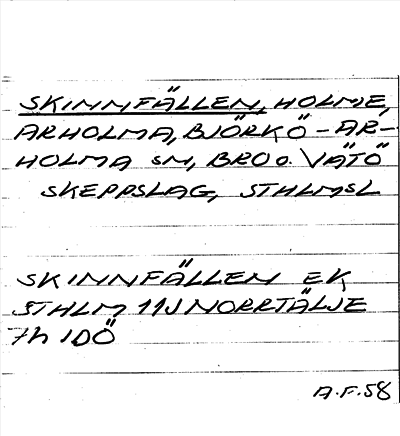 SKINNFÄLLEN, HOLME,
ARHOLMA, BJÖRKÖ-AR-
HOLMA SN, BRO O. VÄTÖ
SKEPPSLAG, STHLMSL
SKINNFÄLLEN EK
STHLM 11J NORRTÄLJE
7h IDÖ
A.F. 58